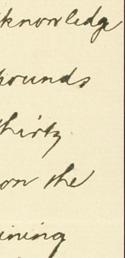 knowledge
pounds
thirty
on the
ining